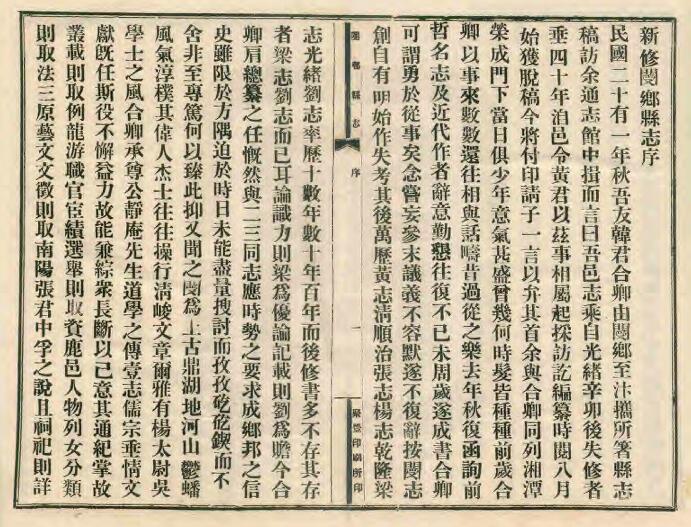 新修閿鄉縣志序
民國二十有一年秋吾友韓君合卿由閿鄉至汴攜所著縣志
稿訪余通志館中揖而言曰吾邑志乘自光緒辛卯後失修者
垂四十年洎邑令黃君以茲事相屬起採訪訖編纂時閱八月
始獲脫稿今將付印請子一言以弁其首余與合卿同列湘潭
榮成門下當日俱少年意氣甚盛曾幾何時髮皆種種前歲合
卿以事來數數還往相與話疇昔過從之樂去年秋復函詢前
哲名志及近代作者辭意勤懇往復不已未周歲遂成書合卿
可謂勇於從事矣念嘗妄參末議義不容默遂不復辭按閿志
創自有明始作失考其後萬歷黃志清順治張志楊志乾隆梁
閿鄉縣志
序
一
聚豐印刷所印
志光緒劉志率歷十數年數十年百年而後修書多不存其存
者梁志劉志而已耳論識力則梁為優論記載則劉為贍今合
卿肩總纂之任慨然與二三同志應時勢之要求成鄉邦之信
史雖限於方隅迫於時日未能盡量搜討而孜孜矻矻鍥而不
舍非至專篤何以臻此抑又聞之閿為上古鼎湖地河山鬱蟠
風氣淳樸其偉人杰士往往操行清峻文章爾雅有楊太尉吳
學士之風合卿承尊公靜庵先生道學之傳壹志儒宗垂情文
獻旣任斯役不懈益力故能兼綜眾長斷以己意其通紀掌故
叢載則取例龍游職官宦績選舉則取資鹿邑人物列女分類
則取法三原藝文文徵則取南陽張君中孚之說且祠祀則詳